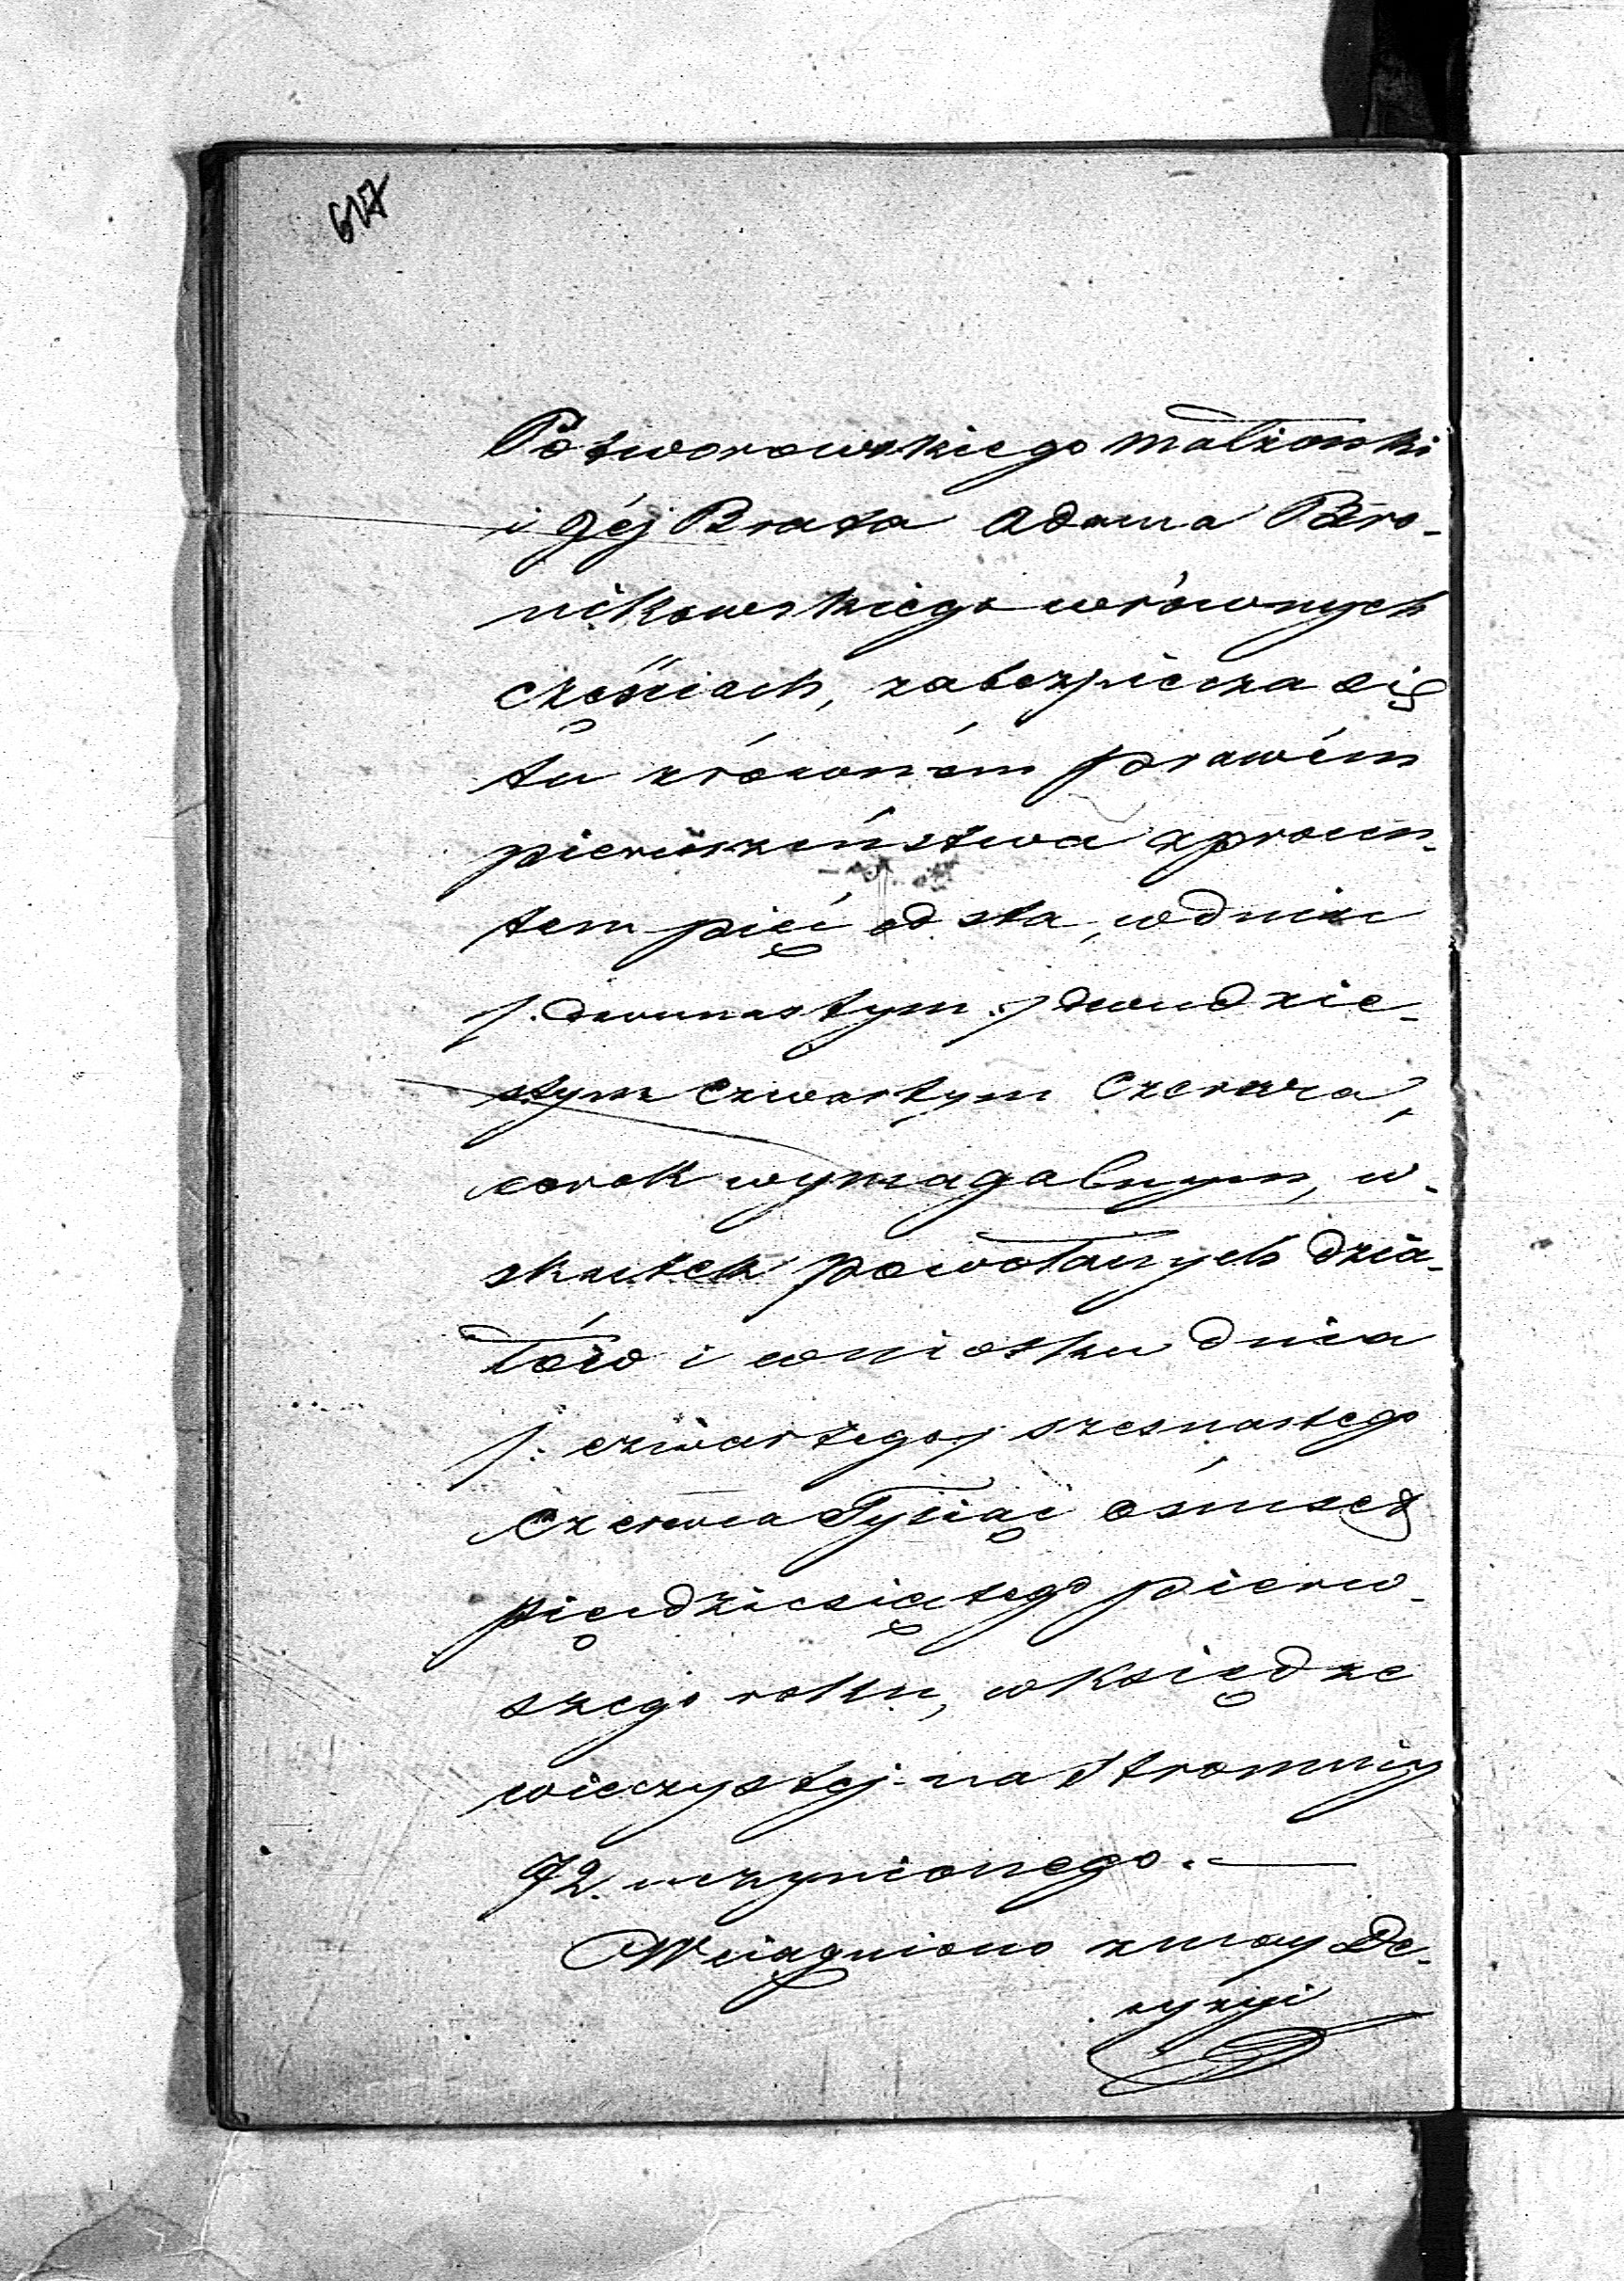 617
Potworowskiego małżonki
i Jéj Brata Adama Bro-
nikowskiego w równych
częściach, zabezpiecza się
tu z równém prawém
pierwszeństwa z procen-
tem pięć od sta, w dniu
/: dwunastym :/ dwudzie-
stym czwartym Czerwca,
co rok wymagalnym, w-
skutek powołanych dzia-
łów i wniosku dnia
/: czwartego :/ szesnastego
Czerwca Tysiąc ośmset
pięćdziesiątego pierw-
szego roku, w księdze
wieczystej na stronnicy
72. uczynionego. —
Wciągniono z mocy De-
cyzyi